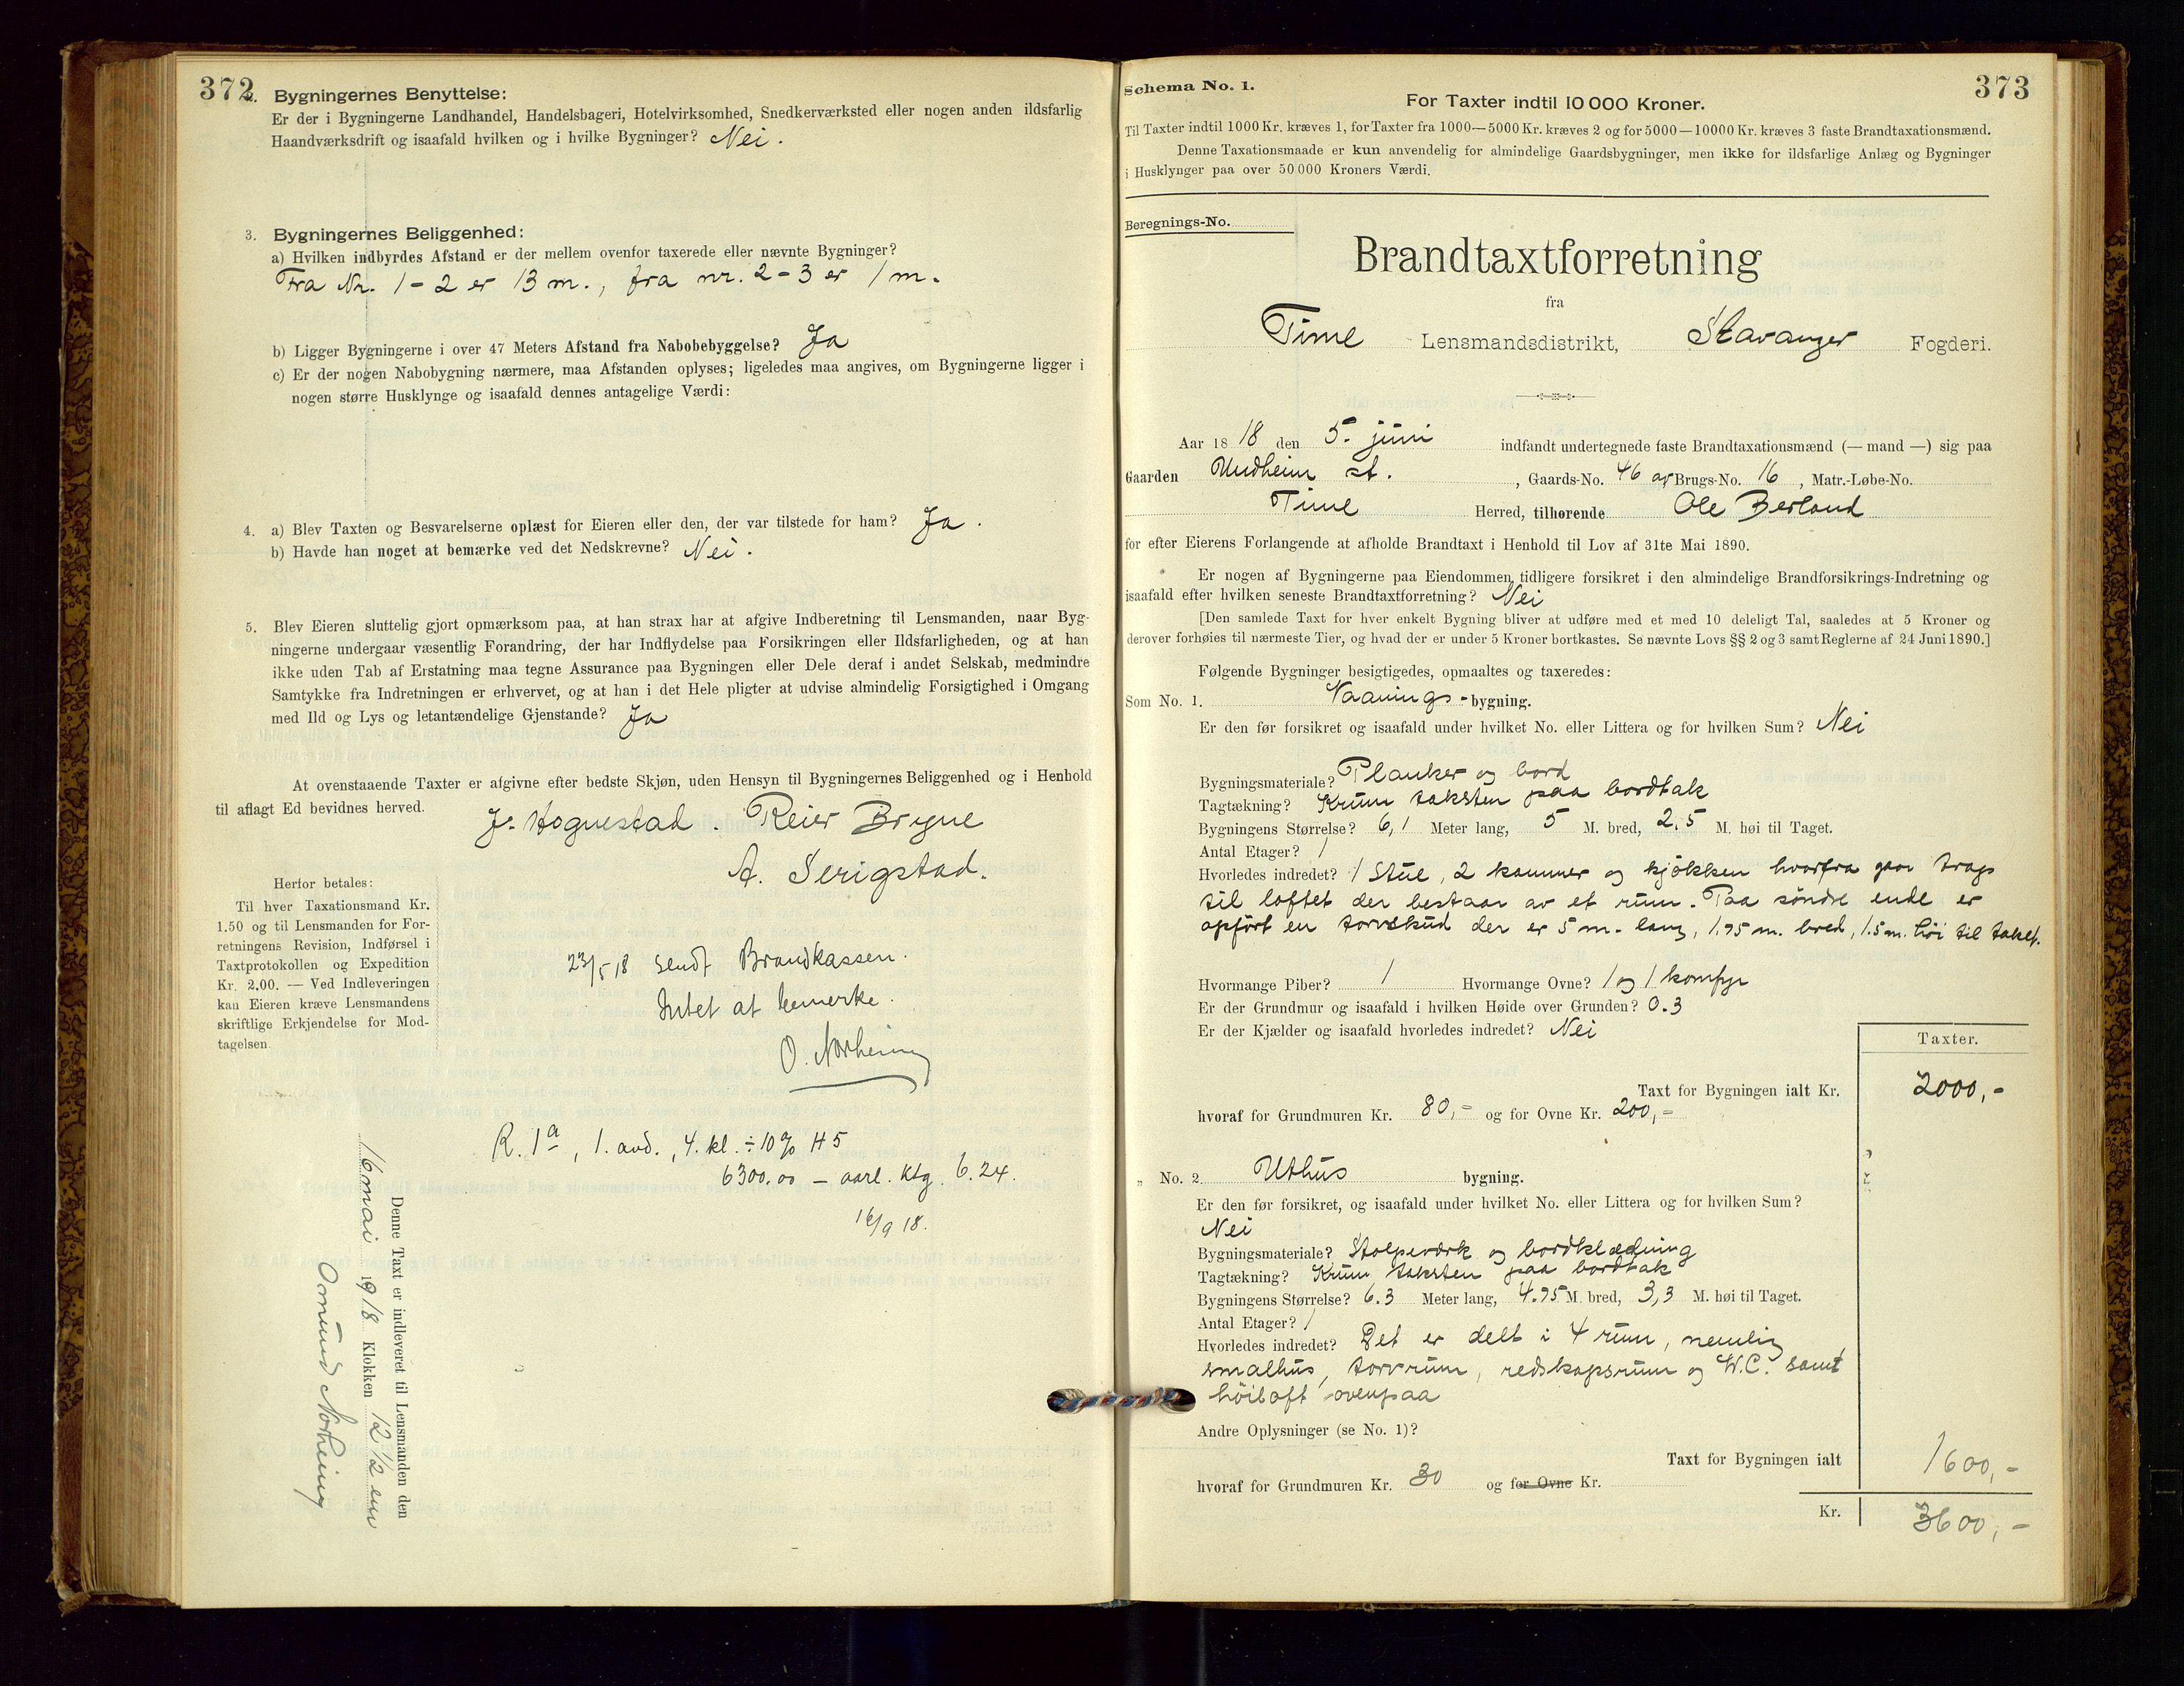 372
2. Bygningernes Benyttelse:
Er der i Bygningerne Landhandel, Handelsbageri, Hotelvirksomhed, Snedkerværksted eller nogen anden ildsfarlig
Haandværksdrift og isaafald hvilken og i hvilke Bygninger? Nei.
3. Bygningernes Beliggenhed:
a) Hvilken indbyrdes Afstand er der mellem ovenfor taxerede eller nævnte Bygninger?
Fra Nr. 1-2 er 13 m., fra nr. 2-3 er 1 m.
b) Ligger Bygningerne i over 47 Meters Afstand fra Nabobebyggelse? Ja
c) Er der nogen Nabobygning nærmere, maa Afstanden oplyses; ligeledes maa angives, om Bygningerne ligger i
nogen større Husklynge og isaafald dennes antagelige Værdi:
4. a) Blev Taxten og Besvarelserne oplæst for Eieren eller den, der var tilstede for ham? Ja.
b) Havde han noget at bemærke ved det Nedskrevne? Nei.
5. Blev Eieren sluttelig gjort opmærksom paa, at han strax har at afgive Indberetning til Lensmanden, naar Byg-
ningerne undergaar væsentlig Forandring, der har Indflydelse paa Forsikringen eller Ildsfarligheden, og at han
ikke uden Tab af Erstatning maa tegne Assurance paa Bygningen eller Dele deraf i andet Selskab, medmindre
Samtykke fra Indretningen er erhvervet, og at han i det Hele pligter at udvise almindelig Forsigtighed i Omgang
med Ild og Lys og letantændelige Gjenstande? Ja
At ovenstaaende Taxter er afgivne efter bedste Skjøn, uden Hensyn til Bygningernes Beliggenhed og i Henhold
til aflagt Ed bevidnes herved.
J. Hognestad. Reier Bryne
A. Serigstad.
Herfor betales:
Til hver Taxationsmand Kr.
1.50 og til Lensmanden for For-
retningens Revision, Indførsel i
Taxtprotokollen og Expedition
Kr. 2.00. — Ved Indleveringen
kan Eieren kræve Lensmandens
skriftlige Erkjendelse for Mod-
tagelsen.
23/5 18 sendt Brandkassen.
Intet at bemerke.
O. Norheim
R. 1a, 1. avd., 4. kl. ÷ 10% H5
6300.00 — aarl. ktg. 6.24.
16/9 18.
Denne Taxt er indleveret til Lensmanden den
16 mai 1918 Klokken 12 1/2 em
Omund Norheim
373
Schema No. 1.
For Taxter indtil 10 000 Kroner.
Til Taxter indtil 1000 Kr. kræves 1, for Taxter fra 1000—5000 Kr. kræves 2 og for 5000—10000 Kr. kræves 3 faste Brandtaxationsmænd.
Denne Taxationsmaade er kun anvendelig for almindelige Gaardsbygninger, men ikke for ildsfarlige Anlæg og Bygninger
i Husklynger paa over 50000 Kroners Værdi.
Beregnings-No.
Brandtaxtforretning
fra
Time Lensmandsdistrikt, Stavanger Fogderi.
Aar 18 18 den 5. juni indfandt undertegnede faste Brandtaxationsmænd (— mand —) sig paa
Gaarden Undheim st., Gaards-No. 46 af Brugs-No. 16, Matr.-Løbe-No.
Time Herred, tilhørende Ole Berland
for efter Eierens Forlangende at afholde Brandtaxt i Henhold til Lov af 31te Mai 1890.
Er nogen af Bygningerne paa Eiendommen tidligere forsikret i den almindelige Brandforsikrings-Indretning og
isaafald efter hvilken seneste Brandtaxtforretning? Nei
[Den samlede Taxt for hver enkelt Bygning bliver at udføre med et med 10 deleligt Tal, saaledes at 5 Kroner og
derover forhøies til nærmeste Tier, og hvad der er under 5 Kroner bortkastes. Se nævnte Lovs §§ 2 og 3 samt Reglerne af 24 Juni 1890.]
Følgende Bygninger besigtigedes, opmaaltes og taxeredes:
Som No. 1. Vaanings-bygning.
Er den før forsikret og isaafald under hvilket No. eller Littera og for hvilken Sum? Nei
Bygningsmateriale? Planker og bord
Tagtækning? Krum taksten paa bordtak
Bygningens Størrelse? 6,1 Meter lang, 5 M. bred, 2.5 M. høi til Taget.
Antal Etager? 1
Hvorledes indredet? 1 Stue, 2 kammer og kjøkken hvorfra gaar trap
til loftet der bestaar av et rum. Paa søndre ende er
opført en torvskud der er 5 m. lang, 1.75 m. bred, 1.5 m. høi til taket.
Hvormange Piber? 1 Hvormange Ovne? 1 og 1 komfyr
Er der Grundmur og isaafald i hvilken Høide over Grunden? 0.3
Er der Kjælder og isaafald hvorledes indredet? Nei
Taxter.
Taxt for Bygningen ialt Kr. 2000,-
hvoraf for Grundmuren Kr. 80,- og for Ovne Kr. 200,-
„ No. 2 Uthus bygning.
Er den før forsikret, og isaafald under hvilket No. eller Littera og for hvilken Sum?
Nei
Bygningsmateriale? Stolpeverk og bordklædning
Tagtækning? Krum taksten paa bordtak
Bygningens Størrelse? 6.3 Meter lang, 4.75 M. bred, 3,3 M. høi til Taget.
Antal Etager? 1
Hvorledes indredet? Det er delt i 4 rum, nemlig
smalhus, torvrum, redskapsrum og W.C. samt
høiloft ovenpaa
Andre Oplysninger (se No. 1)?
Taxt for Bygningen ialt 1600,-
hvoraf for Grundmuren Kr. 30 og for Ovne Kr.
Kr. 3600,-